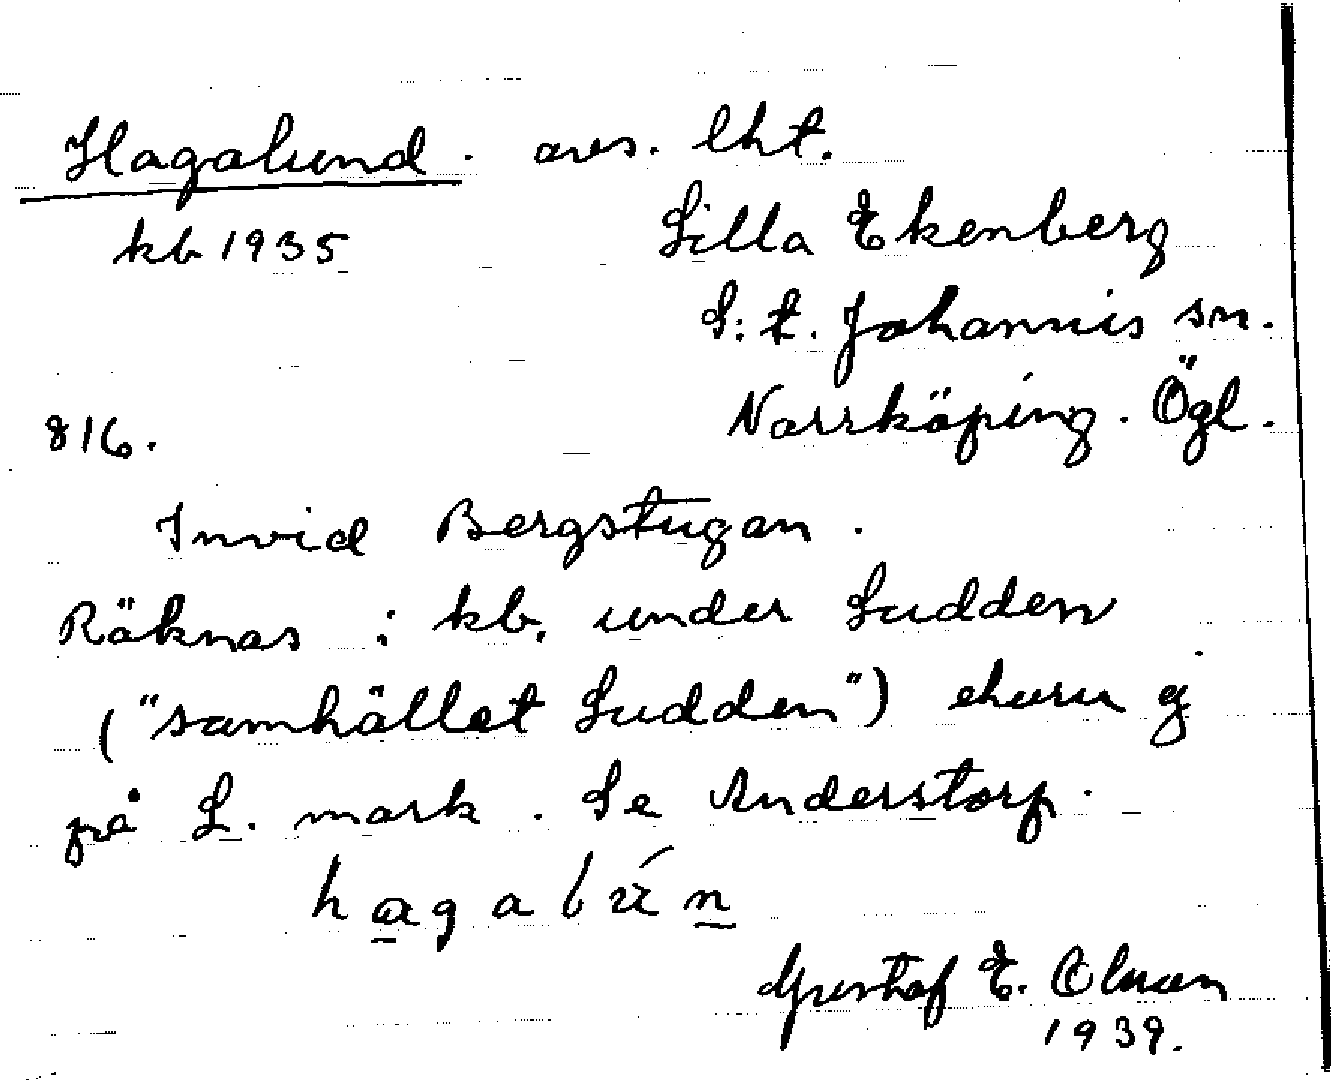 Hagalund. avs. lht.
kb 1935 Lilla Ekenberg
S:t. Johannis sn.
816. Norrköping. Ögl.
Invid Bergstugan.
Räknas i kb. under Sudden
("samhället Sudden") ehuru ej
på S. mark. Se Anderstorp.
Gustaf E. Olsson
1939.